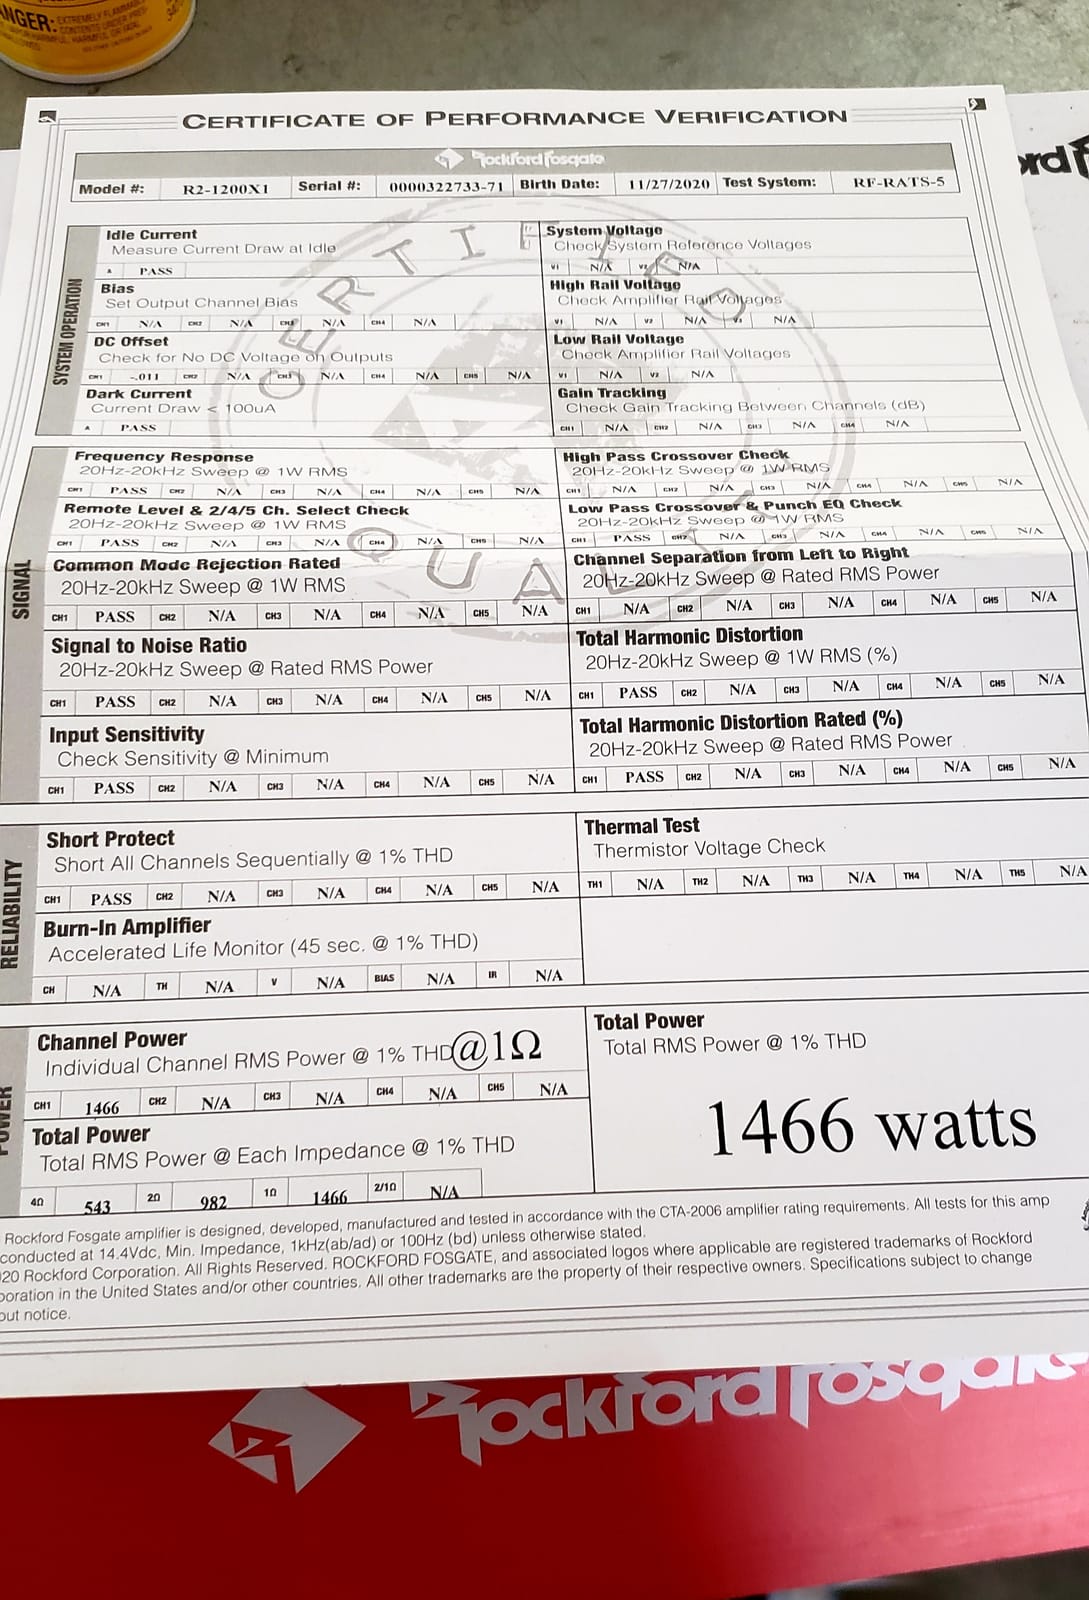 ANGER: EXTREMELY FLAMMAB
CONTENTS UNDER PRE
CERTIFICATE OF PERFORMANCE VERIFICATION
rockford fosgate
Model #: R2-1200X1 Serial #: 0000322733-71 Birth Date: 11/27/2020 Test System: RF-RATS-5
CERTIFIED
QUALITY
SYSTEM OPERATION
Idle Current
Measure Current Draw at Idle
A PASS
System Voltage
Check System Reference Voltages
V1 N/A V2 N/A
Bias
Set Output Channel Bias
CH1 N/A CH2 N/A CH3 N/A CH4 N/A
High Rail Voltage
Check Amplifier Rail Voltages
V1 N/A V2 N/A V3 N/A
DC Offset
Check for No DC Voltage on Outputs
CH1 -.011 CH2 N/A CH3 N/A CH4 N/A CH5 N/A
Low Rail Voltage
Check Amplifier Rail Voltages
V1 N/A V2 N/A
Dark Current
Current Draw < 100uA
A PASS
Gain Tracking
Check Gain Tracking Between Channels (dB)
CH1 N/A CH2 N/A CH3 N/A CH4 N/A
SIGNAL
Frequency Response
20Hz-20kHz Sweep @ 1W RMS
CH1 PASS CH2 N/A CH3 N/A CH4 N/A CH5 N/A
High Pass Crossover Check
20Hz-20kHz Sweep @ 1W RMS
CH1 N/A CH2 N/A CH3 N/A CH4 N/A CH5 N/A
Remote Level & 2/4/5 Ch. Select Check
20Hz-20kHz Sweep @ 1W RMS
CH1 PASS CH2 N/A CH3 N/A CH4 N/A CH5 N/A
Low Pass Crossover & Punch EQ Check
20Hz-20kHz Sweep @ 1W RMS
CH1 PASS CH2 N/A CH3 N/A CH4 N/A CH5 N/A
Common Mode Rejection Rated
20Hz-20kHz Sweep @ 1W RMS
CH1 PASS CH2 N/A CH3 N/A CH4 N/A CH5 N/A
Channel Separation from Left to Right
20Hz-20kHz Sweep @ Rated RMS Power
CH1 N/A CH2 N/A CH3 N/A CH4 N/A CH5 N/A
Signal to Noise Ratio
20Hz-20kHz Sweep @ Rated RMS Power
CH1 PASS CH2 N/A CH3 N/A CH4 N/A CH5 N/A
Total Harmonic Distortion
20Hz-20kHz Sweep @ 1W RMS (%)
CH1 PASS CH2 N/A CH3 N/A CH4 N/A CH5 N/A
Input Sensitivity
Check Sensitivity @ Minimum
CH1 PASS CH2 N/A CH3 N/A CH4 N/A CH5 N/A
Total Harmonic Distortion Rated (%)
20Hz-20kHz Sweep @ Rated RMS Power
CH1 PASS CH2 N/A CH3 N/A CH4 N/A CH5 N/A
RELIABILITY
Short Protect
Short All Channels Sequentially @ 1% THD
CH1 PASS CH2 N/A CH3 N/A CH4 N/A CH5 N/A
Thermal Test
Thermistor Voltage Check
TH1 N/A TH2 N/A TH3 N/A TH4 N/A TH5 N/A
Burn-In Amplifier
Accelerated Life Monitor (45 sec. @ 1% THD)
CH N/A TH N/A V N/A BIAS N/A IR N/A
POWER
Channel Power
Individual Channel RMS Power @ 1% THD @1Ω
CH1 1466 CH2 N/A CH3 N/A CH4 N/A CH5 N/A
Total Power
Total RMS Power @ 1% THD
1466 watts
Total Power
Total RMS Power @ Each Impedance @ 1% THD
4Ω 543 2Ω 982 1Ω 1466 2/1Ω N/A
Rockford Fosgate amplifier is designed, developed, manufactured and tested in accordance with the CTA-2006 amplifier rating requirements. All tests for this amp
conducted at 14.4Vdc, Min. Impedance, 1kHz(ab/ad) or 100Hz (bd) unless otherwise stated.
020 Rockford Corporation. All Rights Reserved. ROCKFORD FOSGATE, and associated logos where applicable are registered trademarks of Rockford
poration in the United States and/or other countries. All other trademarks are the property of their respective owners. Specifications subject to change
out notice.
rockford fosgate